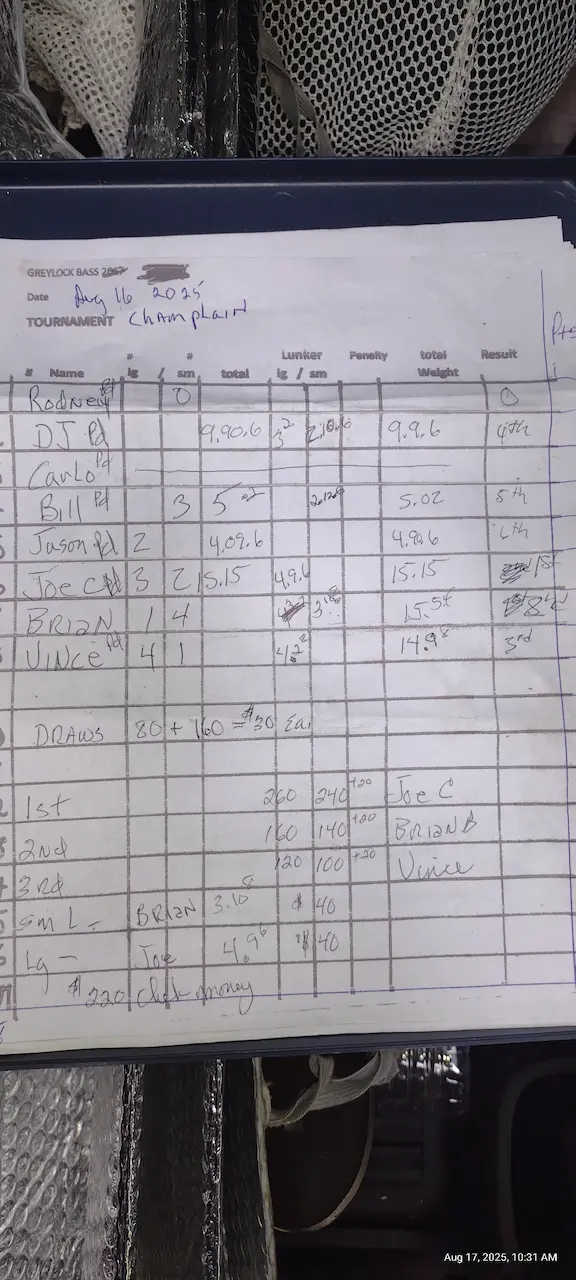 GREYLOCK BASS
Date Aug 16 2025
TOURNAMENT Champlain
Pts
# # Lunker Penalty total Result
# Name lg / sm total lg / sm Weight
Rodney Pd 0 0
DJ Pd 9.90.6 3² 9.9.6 4th
Carlo Pd
Bill Pd 3 5 02 5.02 5th
Jason Pd 2 4.09.6 6th
Joe C Pd 3 2 15.15 4.9.6 15.15 1st
BRIAN 1 4
VINCE Pd 4 1 4.2⁸ 14.9⁸ 3rd
DRAWS 80 + 160 = $30 Ea.
1st 260 240 +20 Joe C
2nd 160 140 +20 BRIAN B
3rd 120 100 +20 Vince
Sm L - BRIAN 3.10⁸ $ 40
Lg - Joe 4.9⁶ $ 40
$220 Club money
Aug 17, 2025, 10:31 AM